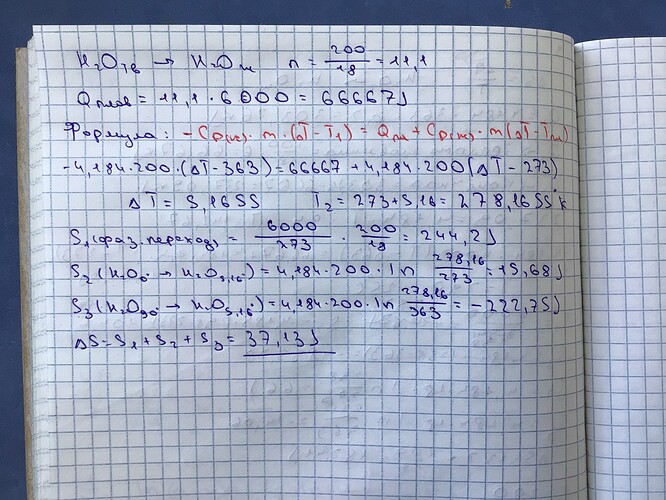 H₂Oтв → H₂Oж n = 200/18 = 11,1
Qплав = 11,1 · 6000 = 66667J
Формула: -Cp(ж) · m · (ΔT - T₁) = Qпл + Cp(ж) · m(ΔT - Tпл)
-4,184·200·(ΔT-363) = 66667 + 4,184·200(ΔT-273)
ΔT = 5,1655 T₂ = 273+5,16 = 278,1655°k
S₁(фаз.переход) = 6000/273 · 200/18 = 244,2J
S₂(H₂O₀° → H₂O₅,₁₆°) = 4,184·200·ln 278,16/273 = 15,68J
S₃(H₂O₉₀° → H₂O₅,₁₆°) = 4,184·200·ln 278,16/363 = -222,75J
ΔS = S₁ + S₂ + S₃ = 37,13J